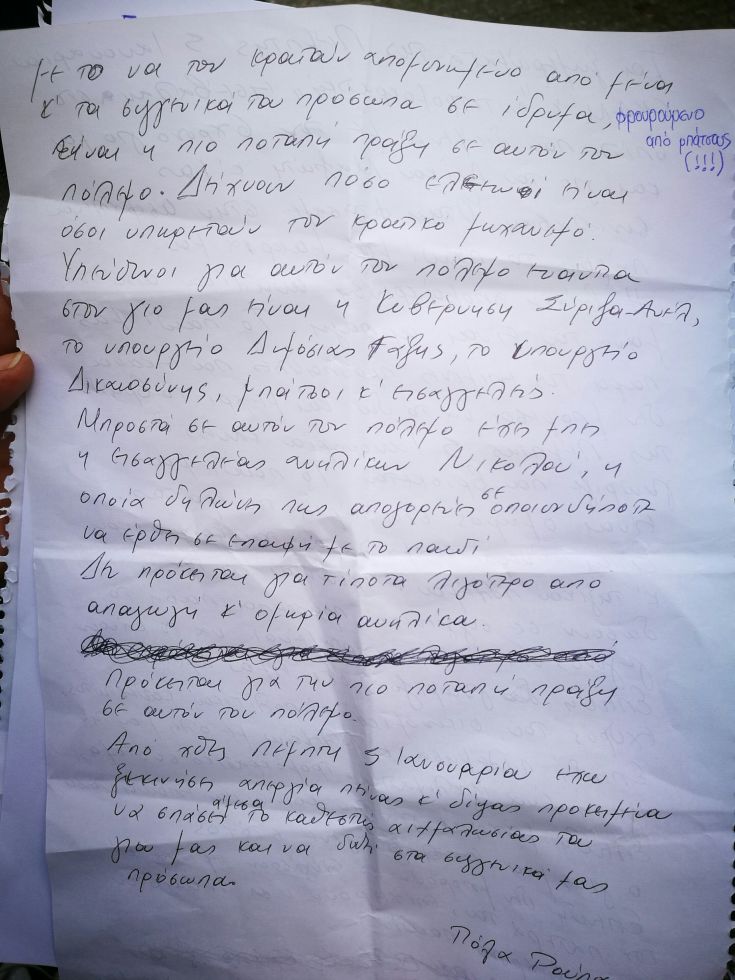 με το να τον κρατούν απομονωμένο από μένα
κ τα συγγενικά του πρόσωπα σε ίδρυμα, φρουρούμενο από μπάτσους (!!!)
είναι η πιο ποταπή πράξη σε αυτόν τον
πόλεμο. Δείχνουν πόσο ελεεινοί είναι
όσοι υπηρετούν τον κρατικό μηχανισμό.
Υπεύθυνοι για αυτόν τον πόλεμο εναντια
στον γιο μας είναι η Κυβέρνηση Σύριζα-Ανελ,
το υπουργείο Δημόσιας Τάξης, το υπουργείο
Δικαιοσύνης, μπάτσοι κ' εισαγγελείς.
Μπροστά σε αυτόν τον πόλεμο έχει μπει
η εισαγγελέας ανηλίκων Νικολού, η
οποία δηλώνει πως απαγορεύει σε οποιονδήποτε
να έρθει σε επαφή με το παιδί
Δεν πρόκειται για τίποτα λιγότερο απο
απαγωγή κ' ομηρία ανηλίκου.
Πρόκειται για την πιο ποταπή πράξη
σε αυτόν τον πόλεμο.
Από χθες Πέμπτη 5 Ιανουαρίου έχω
ξεκινήσει απεργία πείνας κ' δίψας προκειμένου
να σπάσει άμεσα το καθεστώς αιχμαλωσίας του
γιου μας και να δοθεί στα συγγενικά μας
πρόσωπα.
Πόλα Ρούπα